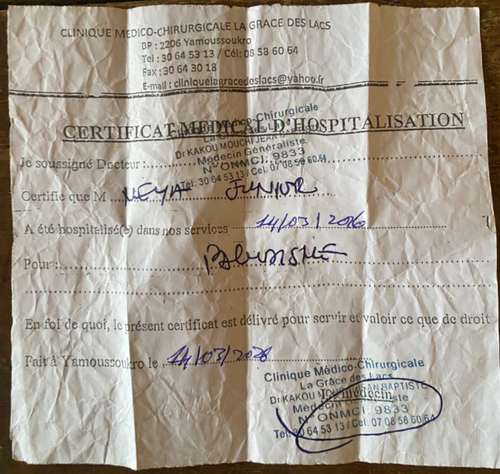 CLINIQUE MEDICO-CHIRURGICALE LA GRACE DES LACS
BP : 2206 Yamoussoukro
Tel : 30 64 53 13 / Cél: 08 58 60 64
Fax : 30 64 30 18
E-mail : cliniquelagracedeslacs@yahoo.fr
CERTIFICAT MEDICAL D'HOSPITALISATION
Clinique Médico-Chirurgicale
La Grâce des Lacs
Je soussigné Docteur :
Dr KAKOU MOUCHI JEAN BAPTISTE
Médecin Généraliste
N° ONMCI. 9833
Tel: 30 64 53 13 / Cel: 07 08 58 60 64
Certifie que M KEYA JUNIOR
A été hospitalisé(e) dans nos services 14/03/2026
Pour : PALUDISME
En foi de quoi, le présent certificat est délivré pour servir et valoir ce que de droit.
Fait à Yamoussoukro le 14/03/2026
Clinique Médico-Chirurgicale
La Grâce des Lacs
Dr KAKOU MOUCHI JEAN BAPTISTE
Le médecin
Médecin Généraliste
N° ONMCI. 9833
Tel: 30 64 53 13 / Cel: 07 08 58 60 64